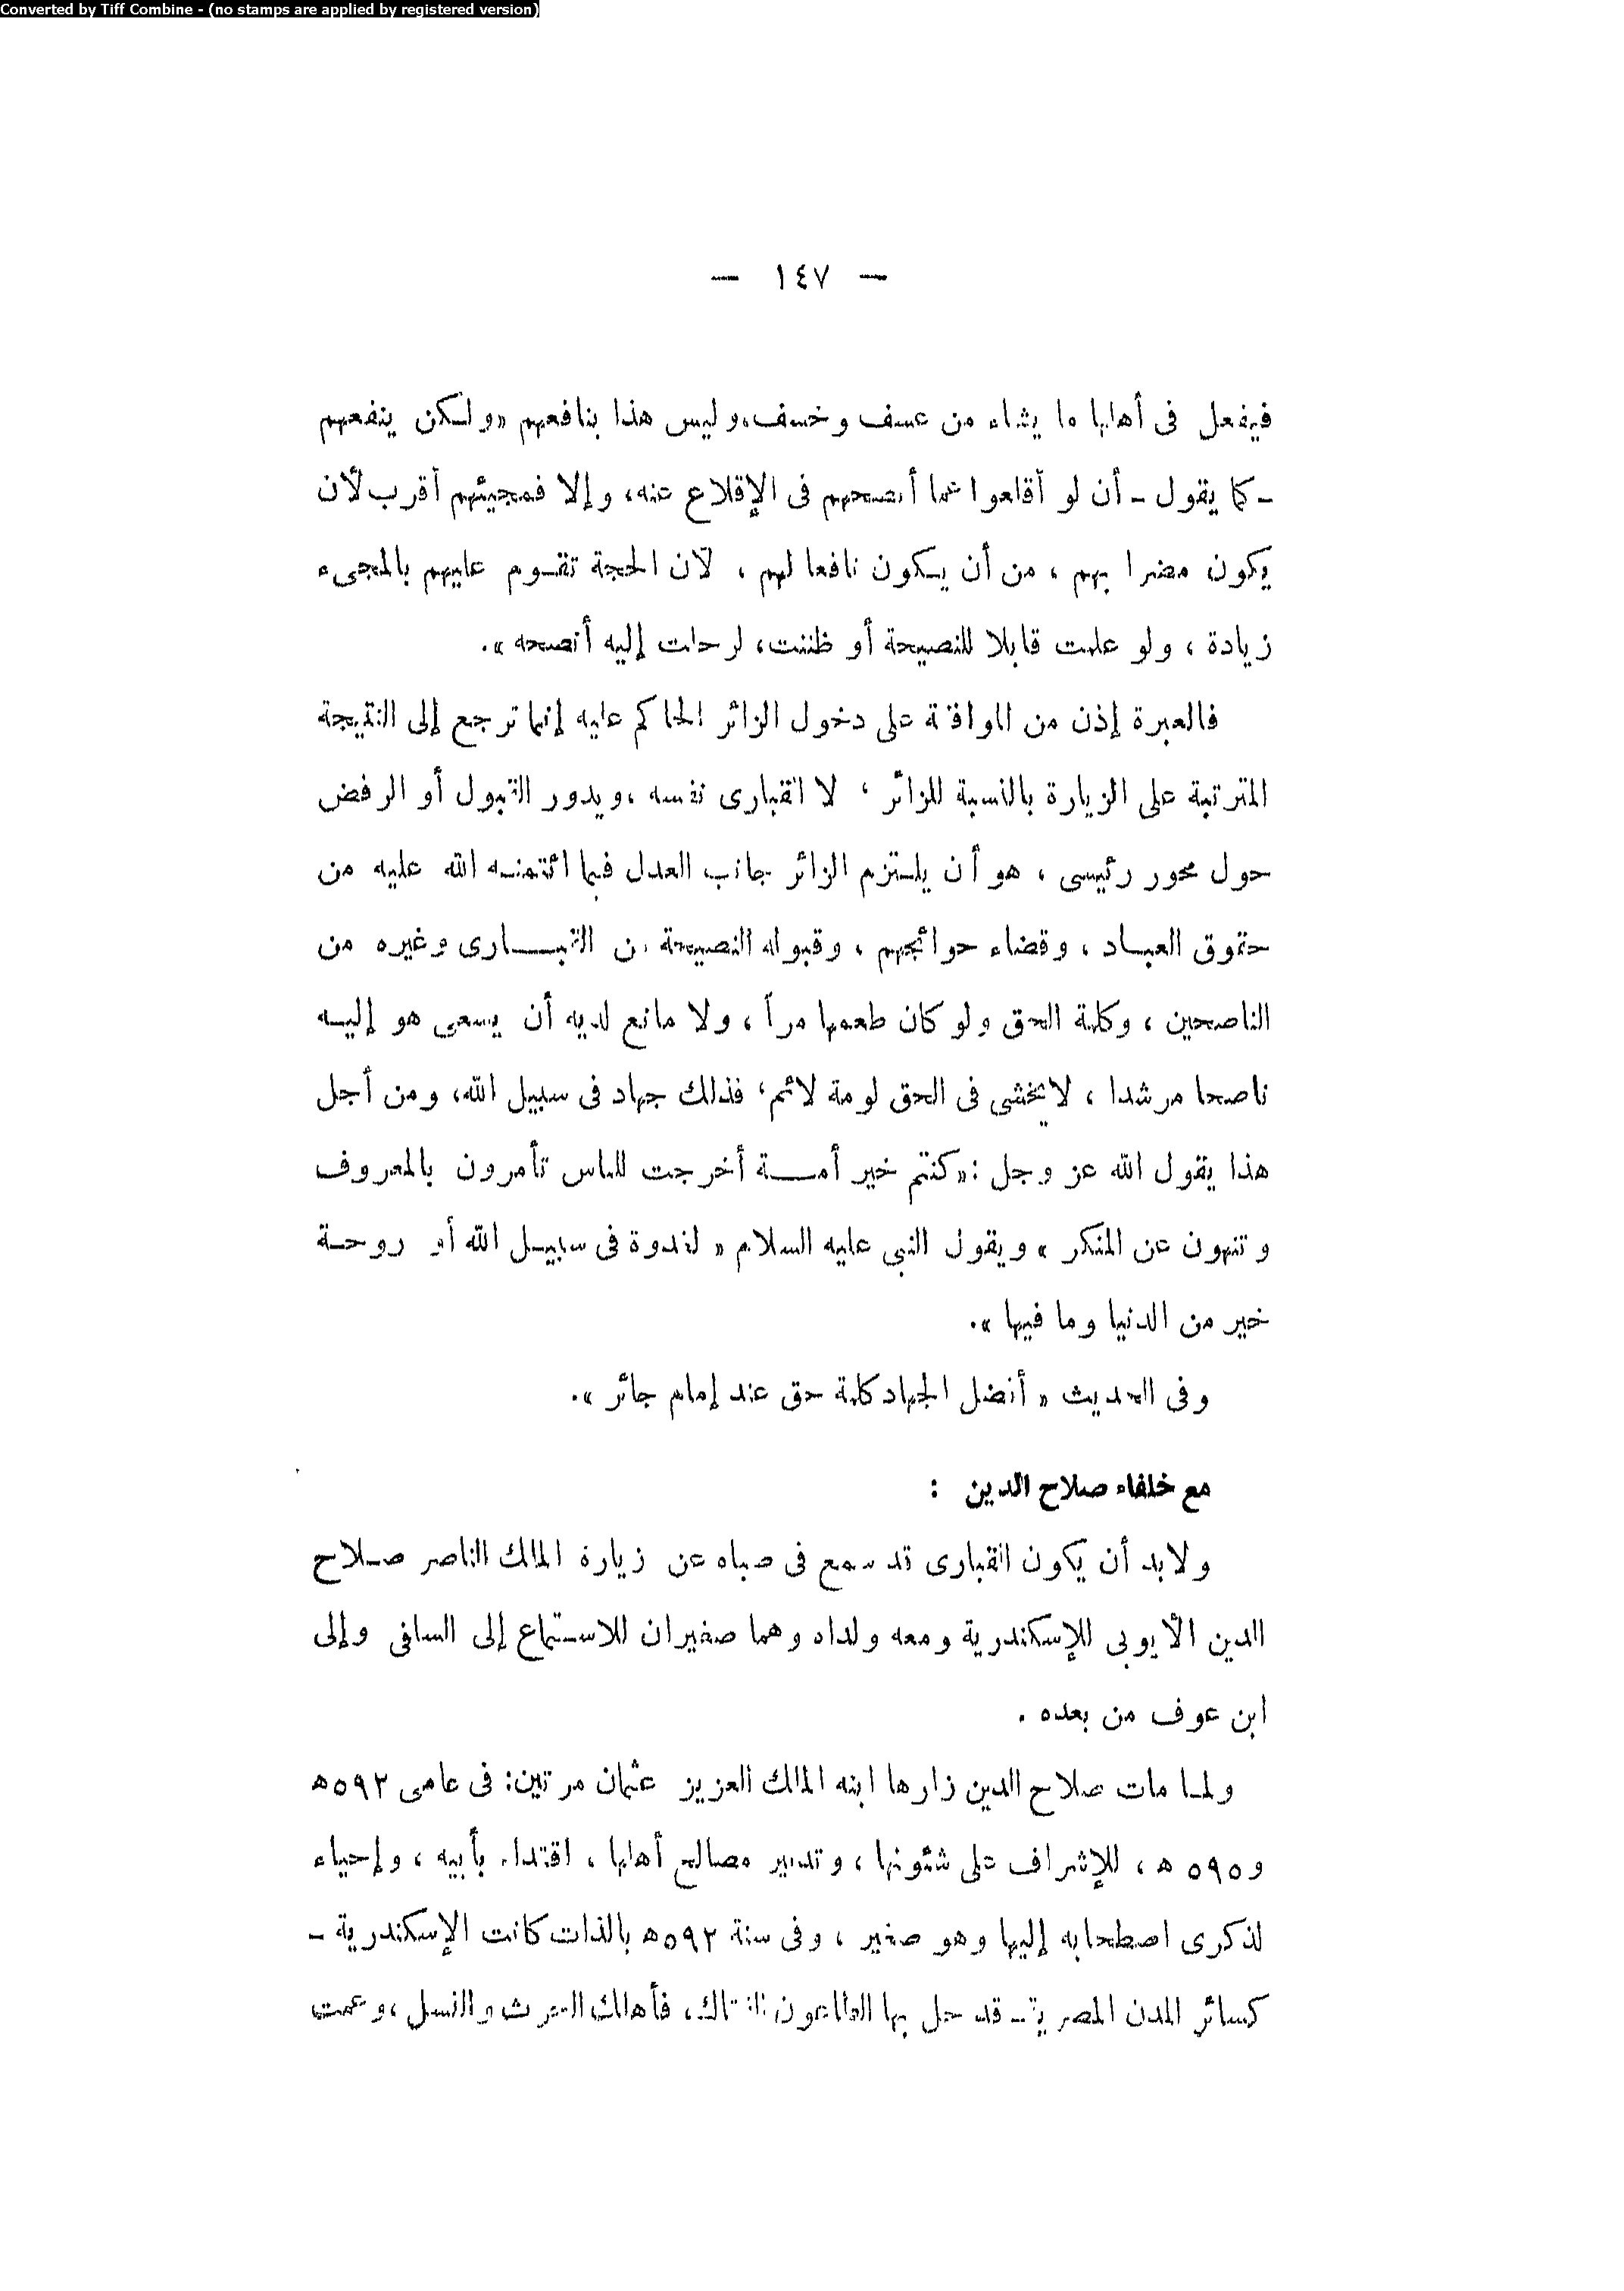 Converted by Tiff Combine - (no stamps are applied by registered version)
— ١٤٧ —
فيفعل فى أهلها ما يشاء من عسف وخسف، وليس هذا بنافعهم «ولكن ينفعهم
– كما يقول – أن لو أقلعوا عما أنصحهم فى الإقلاع عنه، وإلا فمجيئهم أقرب لأن
يكون مضرا بهم ، من أن يكون نافعا لهم ، لأن الحجة تقوم عليهم بالمجىء
زيادة ، ولو علمت قابلا للنصيحة أو ظننت، لرحلت إليه أنصحه ».
فالعبرة إذن من الموافقة على دخول الزائر الحاكم عليه إنما ترجع إلى النتيجة
المترتبة على الزيارة بالنسبة للزائر ، لا القبارى نفسه ،ويدور القبول أو الرفض
حول محور رئيسى ، هو أن يلتزم الزائر جانب العدل فيما ائتمنه الله عليه من
حقوق العباد ، وقضاء حوائجهم ، وقبوله النصيحة من القبارى وغيره من
الناصحين ، وكلمة الحق ولو كان طعمها مراً ، ولا مانع لديه أن يسعى هو إليه
ناصحا مرشدا ، لايخشى فى الحق لومة لائم، فذلك جهاد فى سبيل الله، ومن أجل
هذا يقول الله عز وجل :«كنتم خير أمة أخرجت للناس تأمرون بالمعروف
وتنهون عن المنكر » ويقول النبى عليه السلام « لغدوة فى سبيل الله أو روحة
خير من الدنيا وما فيها ».
وفى الحديث « أفضل الجهاد كلمة حق عند إمام جائر ».
مع خلفاء صلاح الدين :
ولابد أن يكون القبارى قد سمع فى صباه عن زيارة الملك الناصر صلاح
الدين الأيوبى للإسكندرية ومعه ولداه وهما صغيران للاستماع إلى السلفى وإلى
ابن عوف من بعده .
ولما مات صلاح الدين زارها ابنه الملك العزيز عثمان مرتين: فى عامى ٥٩٢ه
و٥٩٥ ه ، للإشراف على شئونها ، وتدبير مصالح أهلها ، اقتداء بأبيه ، وإحياء
لذكرى اصطحابه إليها وهو صغير ، وفى سنة ٥٩٢ه بالذات كانت الإسكندرية –
كسائر المدن المصرية – قد حل بها الطاعون الفتاك، فأهلك الحرث والنسل ،وعمت